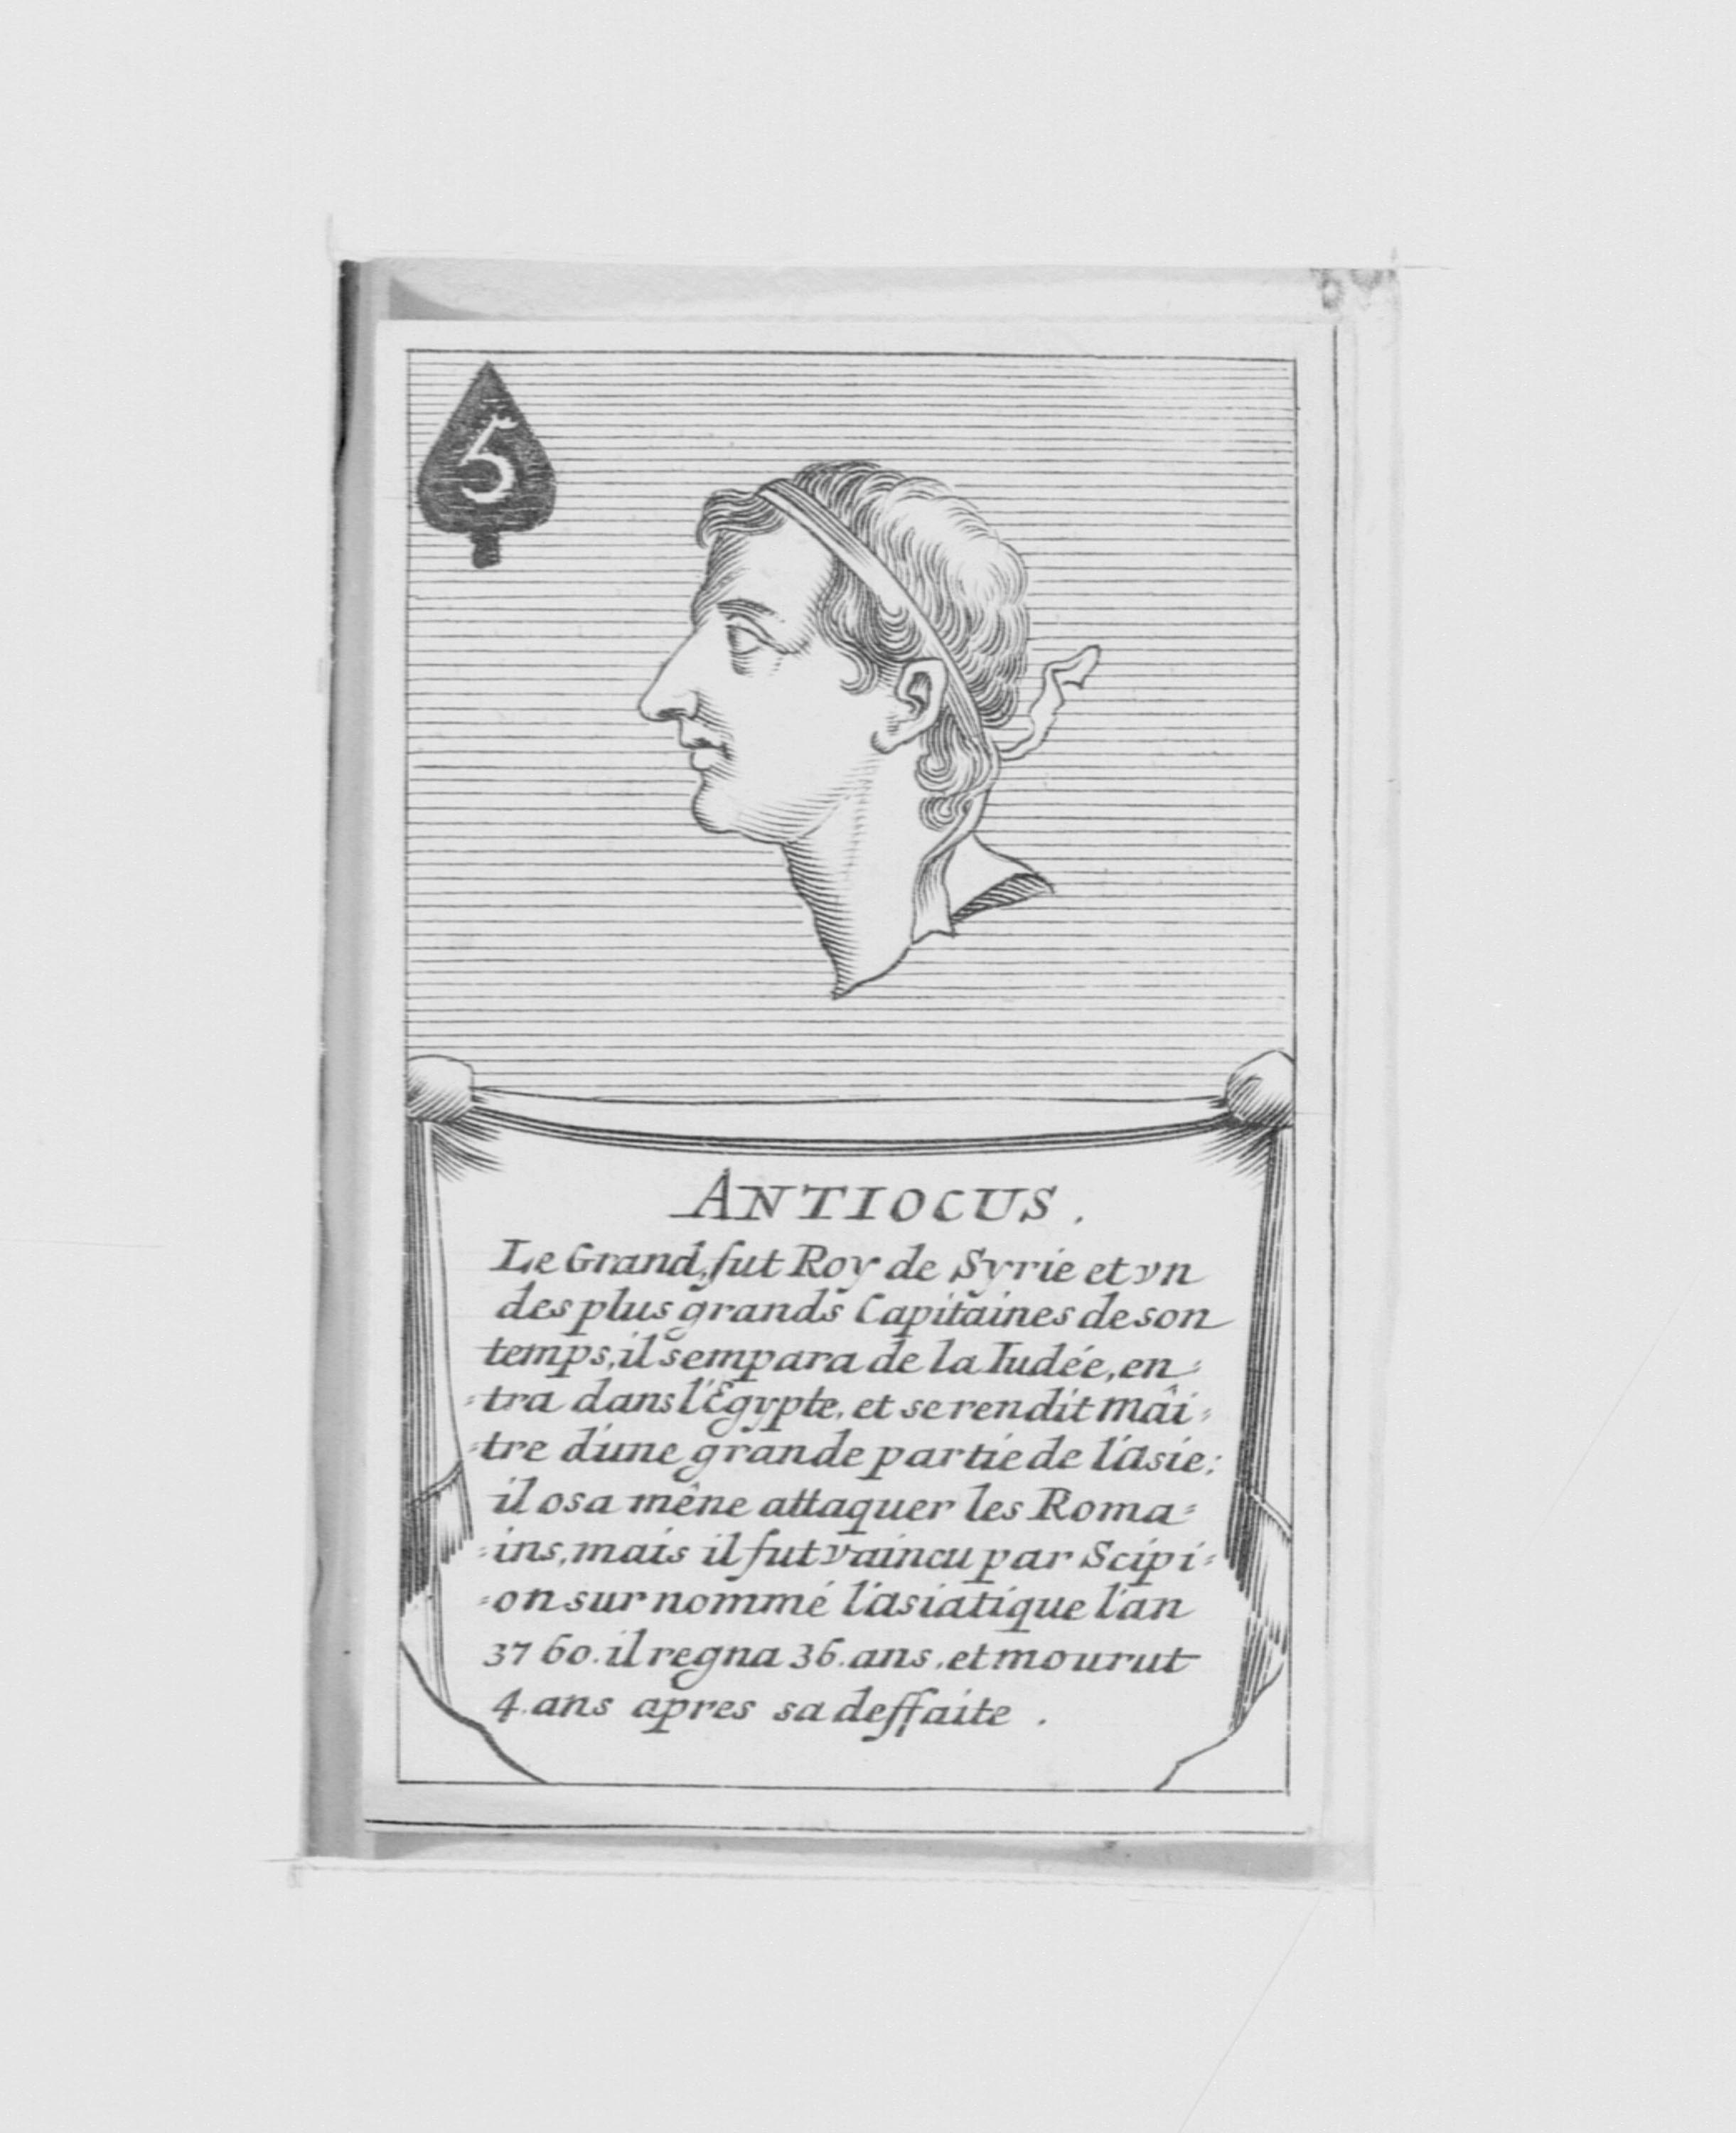 5
ANTIOCUS.
Le Grand, fut Roy de Syrie et vn
des plus grands Capitaines de son
temps, il sempara de la Iudée, en=
=tra dans l'Egypte, et se rendit mâi=
=tre d'une grande partie de l'asie;
il osa mêne attaquer les Roma=
=ins, mais il fut vaincu par Scipi=
=on surnommé l'asiatique l'an
3760. il regna 36. ans, et mourut
4. ans apres sa deffaite.